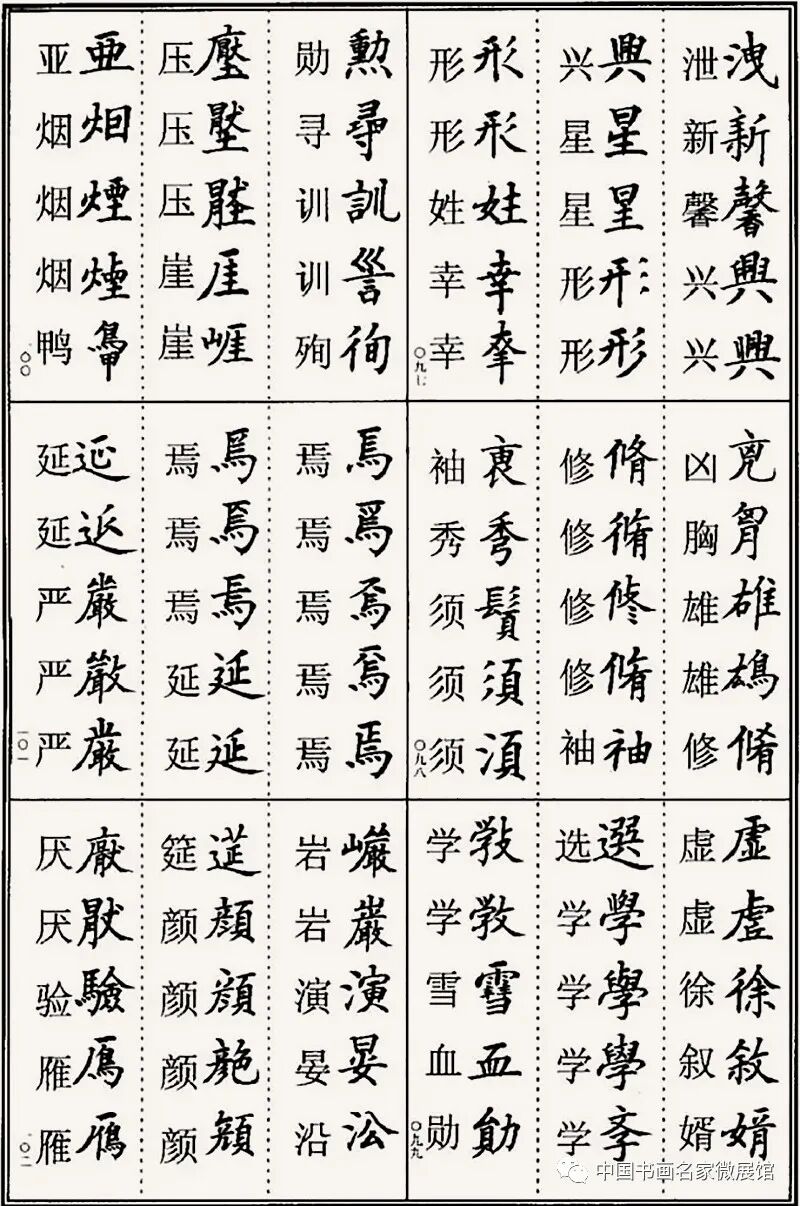 泄洩 新新 馨馨 兴興 兴興
兴興 星星 星星 形形 形形
形形 形形 姓姓 幸幸 幸
〇九七
凶兇 胸胷 雄雄 雄 修脩
修脩 修脩 修修 修脩 袖袖
袖褎 秀秀 须鬚 须須 须湏
〇九八
虚虛 虚虗 徐徐 叙敘 婿婿
选選 学學 学學 学學 学斈
学 学敩 雪雪 血血 勋勛
〇九九
勋勳 寻尋 训訓 训 殉徇
压壓 压壓 压 崖厓 崖崕
亚亞 烟烟 烟煙 烟煙 鸭
一〇〇
焉焉 焉焉 焉焉 焉焉 焉焉
焉焉 焉焉 焉焉 延延 延延
延延 延 严嚴 严嚴 严嚴
一〇一
岩巗 岩巖 演演 晏晏 沿沿
筵筵 颜顔 颜顔 颜 颜顔
厌厭 厌猒 验驗 雁鴈 雁鴈
一〇二
中国书画名家微展馆